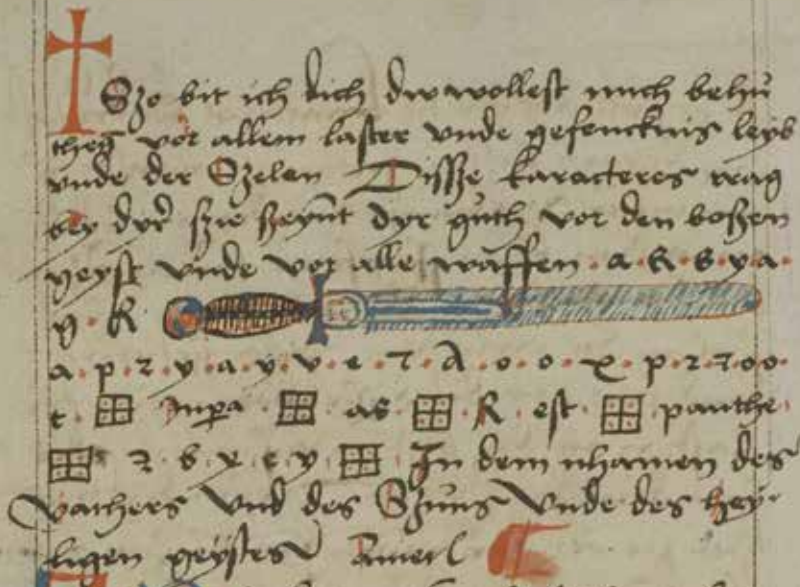 Szo bit ich dich dw wollest mich behu
then vor allem laster vnde gefencknis leyb
vnde der Szelen Disße karacteres trag
bey dyr szie seynt dyr guth vor den boßen
geyst vnde vor alle waffen · a · R · s · y · a ·
g · R
a · p · z · y · a · y · v · e · 7 · A · o · o · x · p · z · 7 · oo ·
t · as · R · est · panthe
z · s · x · e · y In dem nhamen des
Vathers Vnd des Szuns Vnde des hey
ligen geystes Amen